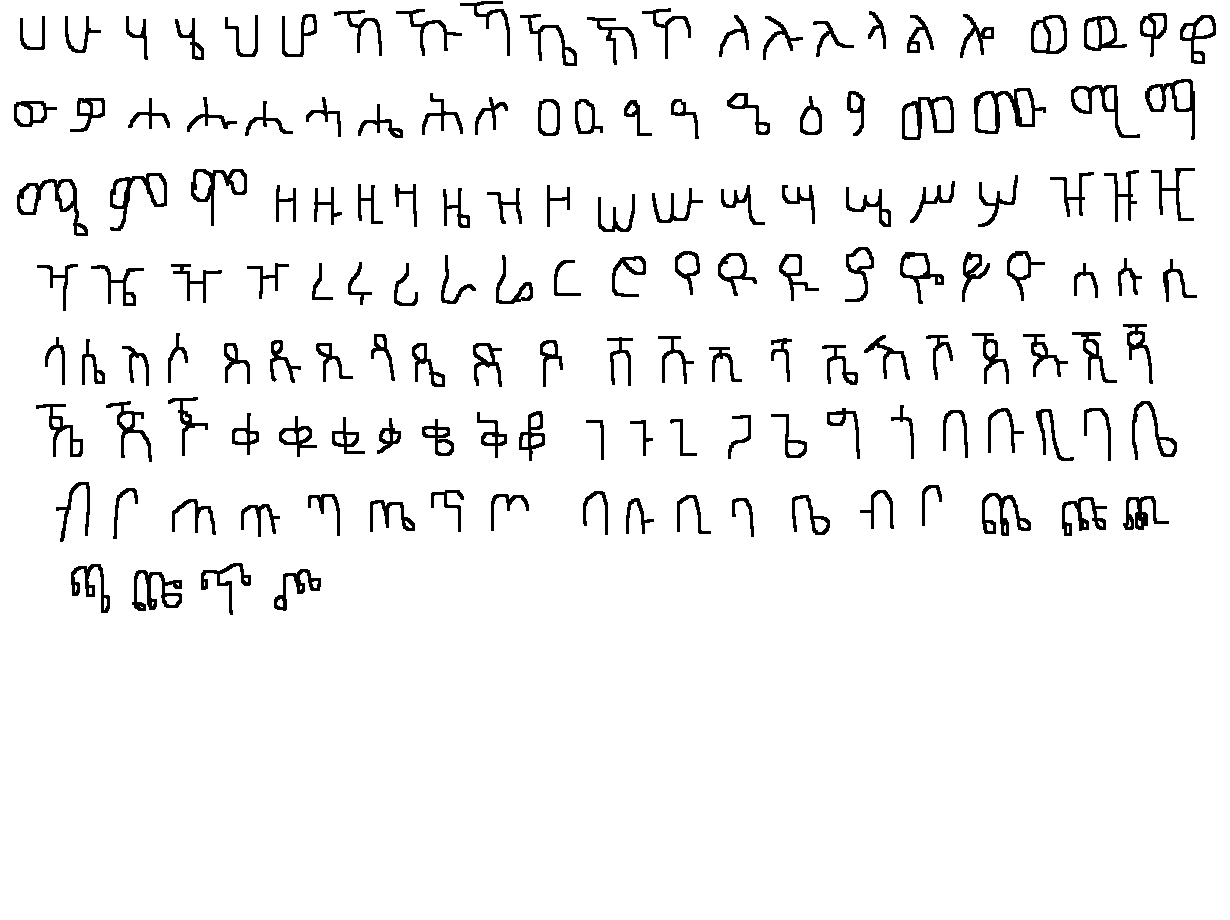 ሀ ሁ ሃ ሄ ህ ሆ ኸ ኹ ኻ ኼ ኽ ኾ ለ ሉ ሊ ላ ል ሎ ወ ዉ ዋ ዌ
ው ዎ ሐ ሑ ሒ ሓ ሔ ሕ ሖ ዐ ዑ ዒ ዓ ዔ ዕ ዖ መ ሙ ሚ ማ
ሜ ም ሞ ዘ ዙ ዚ ዛ ዜ ዝ ዞ ሠ ሡ ሢ ሣ ሤ ሥ ሦ ዠ ዡ ዢ
ዣ ዤ ዥ ዦ ረ ሩ ሪ ራ ሬ ር ሮ የ ዩ ዪ ያ ዬ ይ ዮ ሰ ሱ ሲ
ሳ ሴ ስ ሶ ደ ዱ ዲ ዳ ዴ ድ ዶ ሸ ሹ ሺ ሻ ሼ ሽ ሾ ጀ ጁ ጂ ጃ
ጄ ጅ ጆ ቀ ቁ ቂ ቃ ቄ ቅ ቆ ገ ጉ ጊ ጋ ጌ ግ ጎ በ ቡ ቢ ባ ቤ
ብ ቦ ጠ ጡ ጣ ጤ ጥ ጦ በ ቡ ቢ ባ ቤ ብ ቦ ጨ ጩ ጪ
ጫ ጬ ጭ ጮ